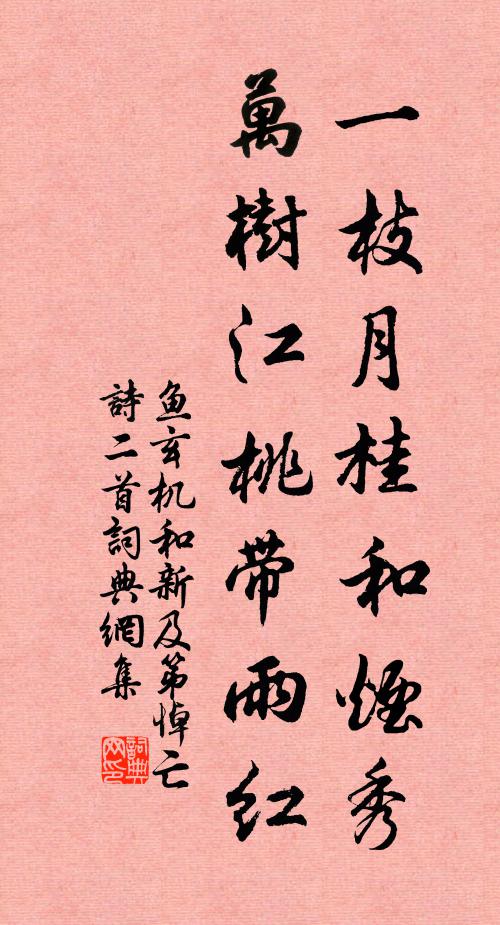 一枝月桂和煙秀
萬樹江桃带雨紅
鱼玄机和新及第悼亡
詩二首詞典網集
詞典网印